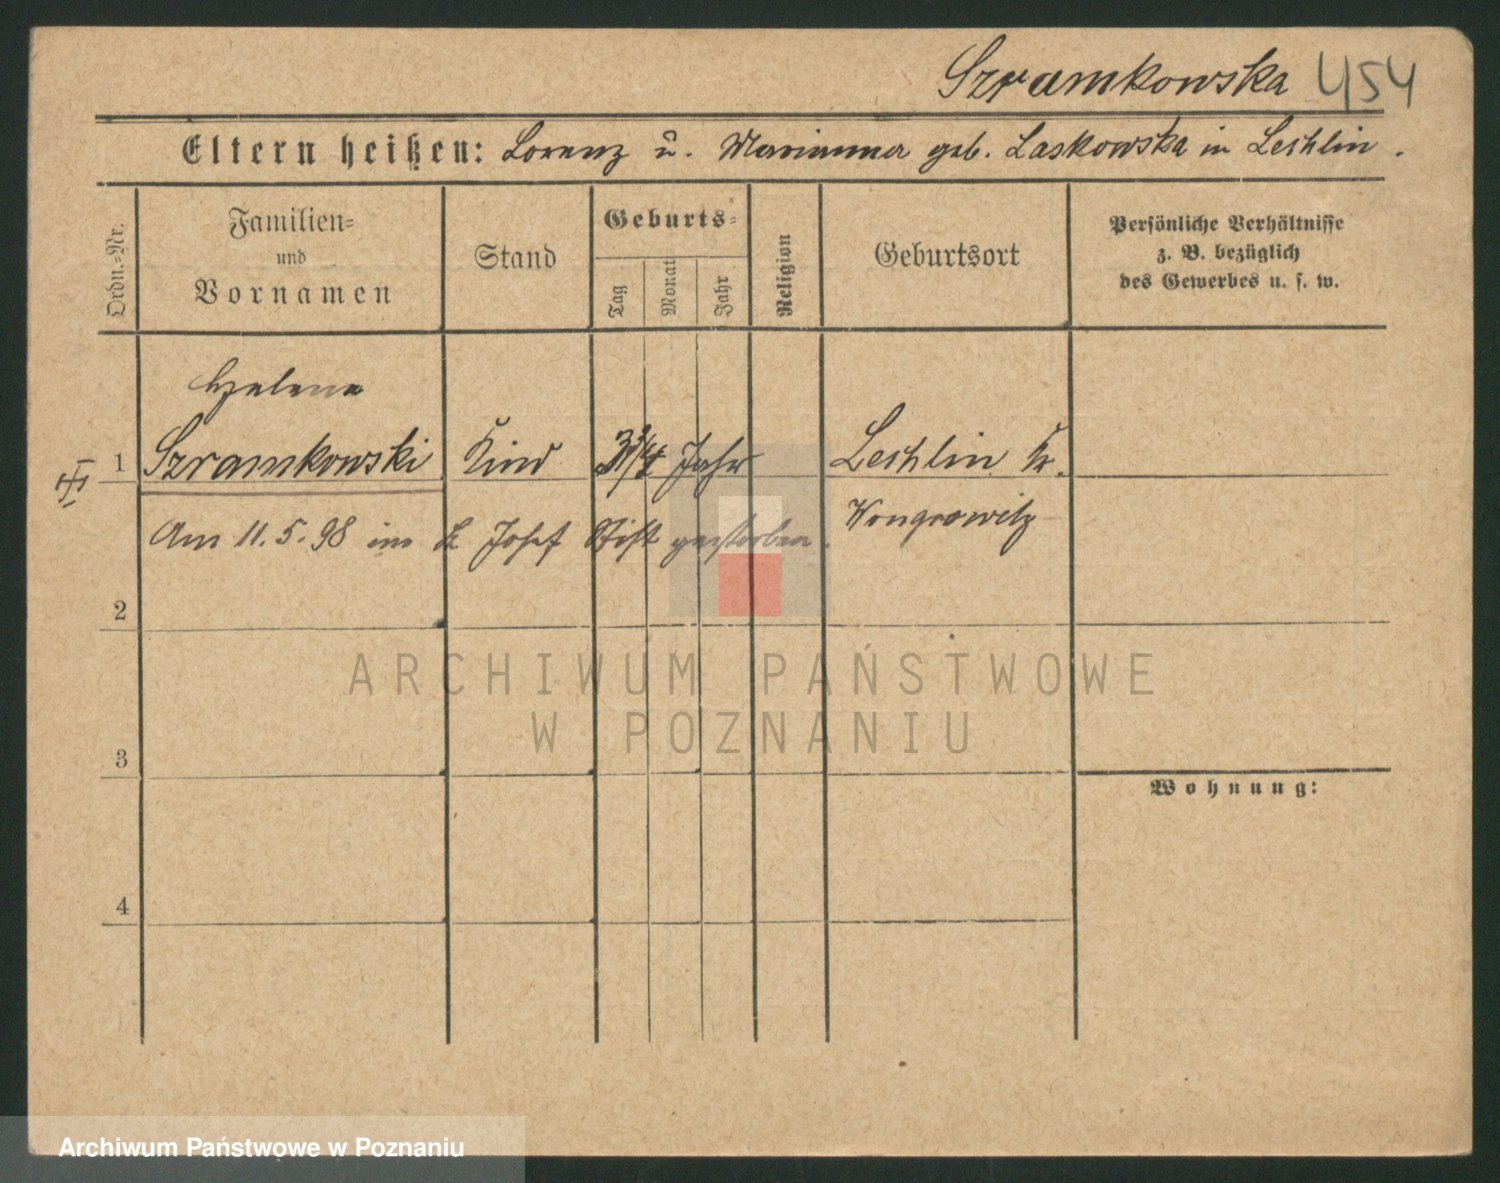 Szramkowska 454
Eltern heißen: Lorenz u. Marianna geb. Laskowska in Leshlin.
Ordn.-Nr.
Familien-
und
Vornamen
Stand
Geburts-
Tag
Monat
Jahr
Religion
Geburtsort
Persönliche Verhältnisse
z. B. bezüglich
des Gewerbes u. s. w.
Helene
1 Szramkowski Kind 3 3/4 Jahr Leshlin Kr.
Wongrowitz
Am 11.5.98 im St Josef Stift gestorben.
2
3
4
Wohnung:
ARCHIWUM PAŃSTWOWE
W POZNANIU
Archiwum Państwowe w Poznaniu